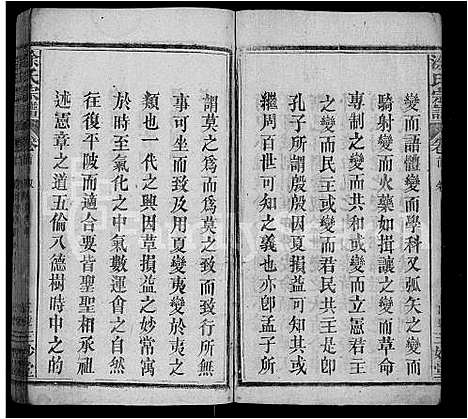 變而語體變而學科又弧矢之變而
騎射變而火藥如揖讓之變而革命
專制之變而共和或變而立憲君主
之變而民主或變而君民同主是即
孔子所謂殷因夏損益周因殷損益
繼周百世可知之義也亦卽孟子所
謂莫之爲而爲莫之致而致若果人
事可坐而致及用夏變夷變於夷之
類也一代之興因革損益之妙常寓
於時至氣化之中氣數運會之自然
往復平陂而適合要皆聖聖相承祖
述憲章之道五倫八德樹時中之的
涂氏宗譜
卷首